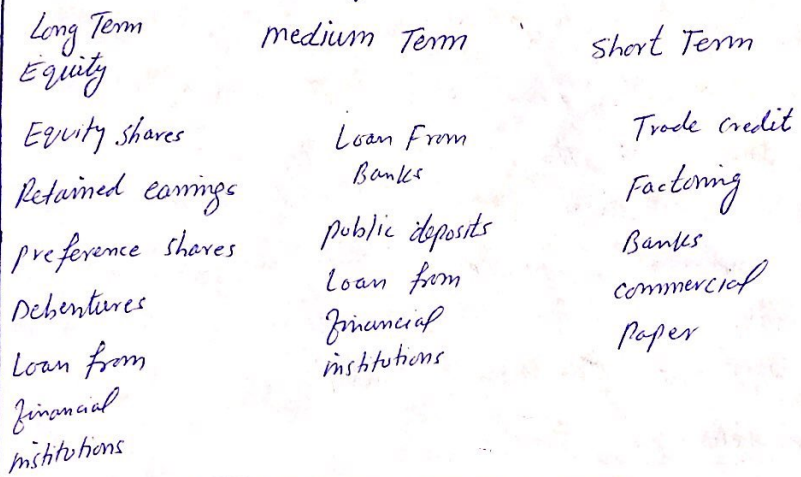 Long Term
Equity
Equity shares
Retained earnings
preference shares
Debentures
Loan from
financial
institutions
medium Term
Loan From
Banks
public deposits
Loan from
financial
institutions
Short Term
Trade credit
Factoring
Banks
commercial
Paper